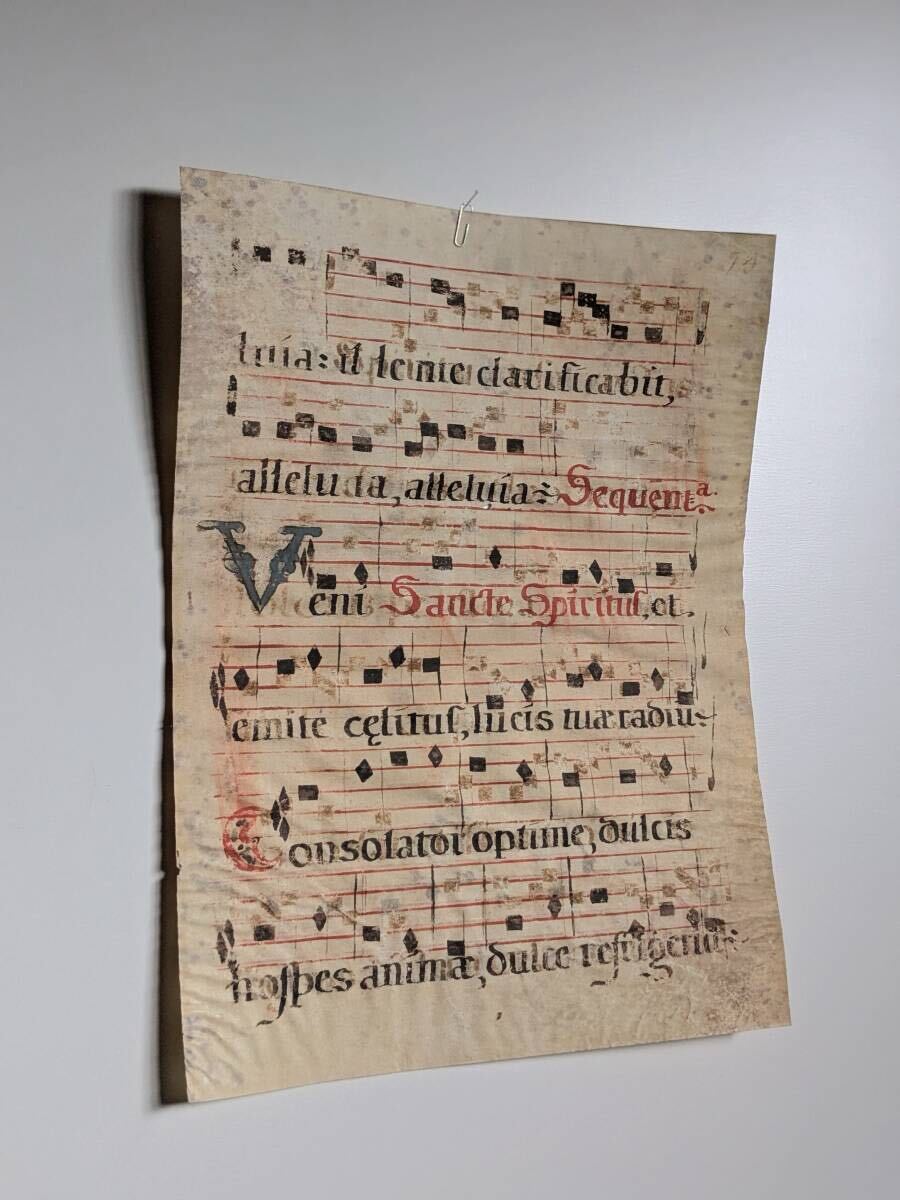 luia: il le me clarificabit,
alleluia, alleluia: Sequent.ª
Veni Sancte Spiritus, et
emite cęlitus, lucis tuæ radiu:
Consolator optime, dulcis
hospes animæ, dulce refrigeriu: